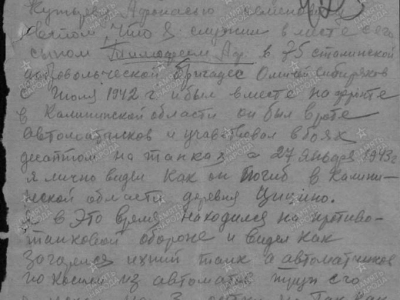 Купцева Афанасью Семенов
что я служил вместе с ва
сыном в 75 сталинской
добровольческой бригаде Омичей Сибиряков
с Июля 1942 г и был вместе на фронте
в Калининской области он был в роте
автоматчиков и участвовал в боях
дисантом на танках а 27 января 1943 г
я лично видел как он погиб в Калини-
нской области деревня Цицино.
я в это время находился на противо-
танковой обороне и видел как
загорелся ихний танк а автоматчиков
покосили из автоматов его